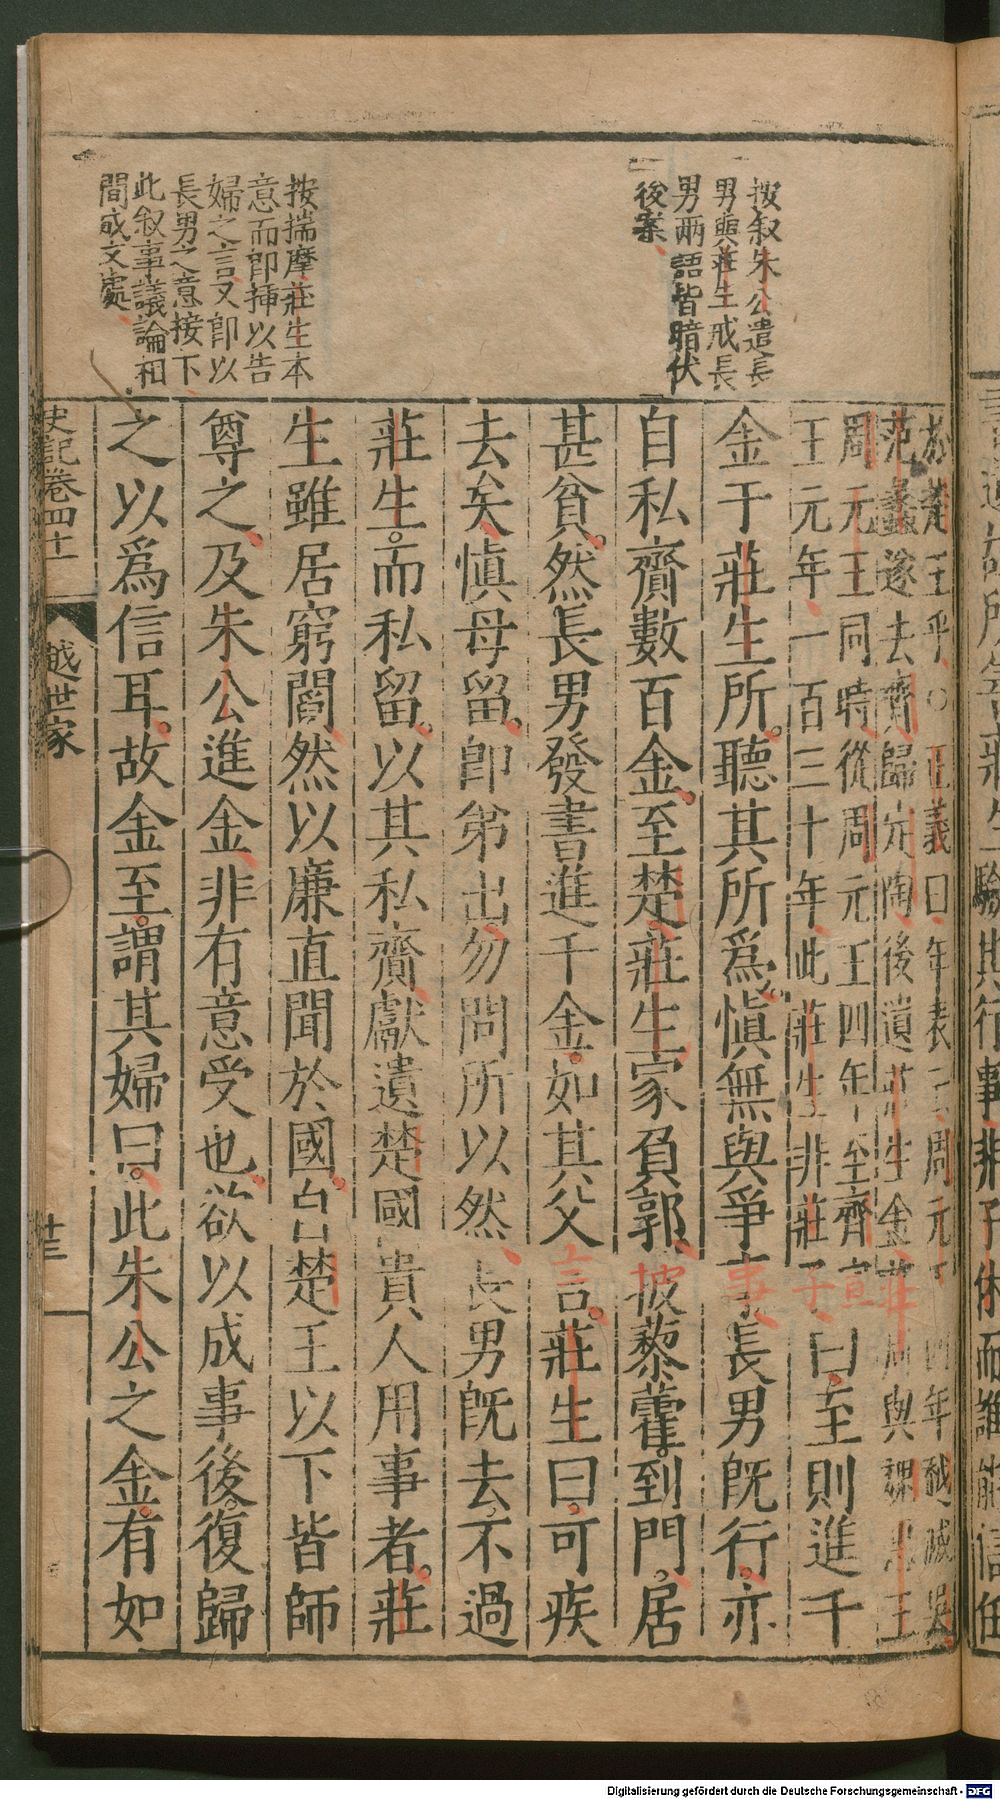 按叙朱公遣長
男與莊生戒長
男兩語皆暗伏
後案
按揣摩莊生本
意而即挿以告
婦之言又即以
長男之意接下
此叙事議論相
間成文處
於楚王乎○正義曰年表云周元王四年越滅吳
范蠡遂去齊歸定陶後遺莊生金莊周與魏惠王
周元王同時從周元王四年至齊宣
王元年一百三十年此莊生非莊子
曰至則進千
金于莊生所聽其所爲愼無與爭事長男既行亦
自私齎數百金至楚莊生家負郭披藜藿到門居
甚貧然長男發書進千金如其父言莊生曰可疾
去矣愼母留即弟出勿問所以然長男既去不過
莊生而私留以其私齎獻遺楚國貴人用事者莊
生雖居窮閻然以廉直聞於國自楚王以下皆師
尊之及朱公進金非有意受也欲以成事後復歸
之以爲信耳故金至謂其婦曰此朱公之金有如
史記卷四十一
越世家
十三
Digitalisierung gefördert durch die Deutsche Forschungsgemeinschaft - DFG